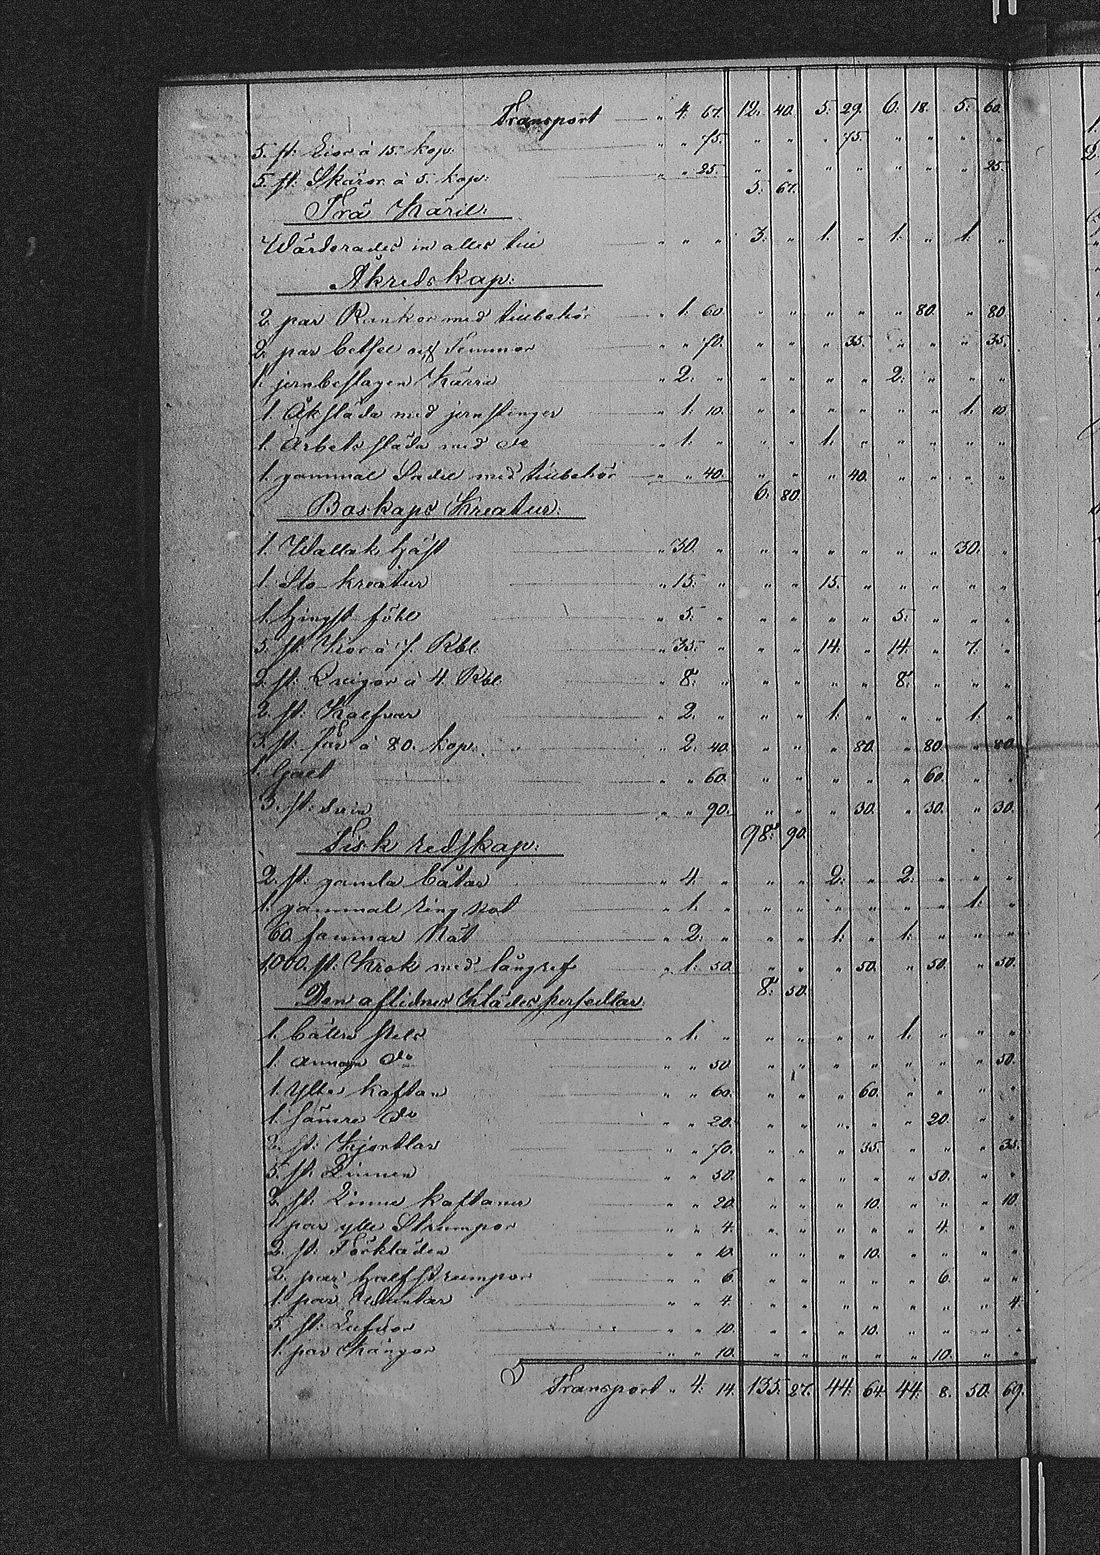 Transport " 4. 67. 12. 40. 5. 29. 6. 18. 5. 60.
5. st: Liar à 15. kop. " " 75. " " " 75. " " " "
5. st: Skäror à 5. kop: " " 25. " " " " " " " 25.
5. 67.
Trä Käril:
Wärderades in alles till " " " 3. " 1. " 1. " 1. "
Åkredskap:
2. par Rankor med tillbehör " 1. 60. " " " " " 80. " 80.
2. par betsel och Tömmar " " 70. " " " 35. " " " 35.
1. jernbeslagen Kärra " 2. " " " " " 2. " " "
1. Åksläda med jernstänger " 1. 10. " " " " " " 1. 10.
1. Arbets släda med do " 1. " " " 1. " " " " "
1. gammal Sadel med tillbehör " " 40. " " " 40. " " " "
6. 80.
Boskaps Kreatur:
1. Wallak Häst " 30. " " " " " " " 30. "
1. Sto kreatur " 15. " " " 15. " " " " "
1. hingst föhl " 5. " " " " " 5. " " "
5. st: Kor à 7. Rbl. " 35. " " " 14. " 14. " 7. "
2. st: Qvigor à 4. Rbl. " 8. " " " " " 8. " " "
2. st: Kalfvar " 2. " " " 1. " " " 1. "
3. st: får à 80. kop. " 2. 40. " " " 80. " 80. " 80.
1. Galt " " 60. " " " " " 60. " "
3. st: svin " " 90. " " " 30. " 30. " 30.
98. 90.
Fisk redskap:
2. st: gamla båtar " 4. " " " 2. " 2. " " "
1. gammal ring not " 1. " " " " " " " 1. "
60. famnar Nät " 2. " " " 1. " 1. " " "
1,000. st: Krok med långref " 1. 50. " " " 50. " 50. " 50.
8. 50.
Den aflidnes Klädes persedlar:
1. bättre pels " 1. " " " " " 1. " " "
1. annan do " " 50 " " " " " " " 50.
1. ylle kaftan " " 60. " " " 60. " " " "
1. sämre do " " 20. " " " " " 20. " "
2. st: Kjortlar " " 70. " " " 35. " " " 35.
5. st: Linnen " " 50. " " " " " 50. " "
2. st: Linne kaftaner " " 20. " " " 10. " " " 10.
1. par ylle Strumpor " " 4. " " " " " 4. " "
2. st: Förkläden " " 10. " " " 10. " " " "
2. par half strumpor " " 6. " " " " " 6. " "
1. par " " 4. " " " " " " " 4.
5. st: " " 10. " " " 10. " " " "
1. par Kängor " " 10. " " " " " 10. " "
Transport " 4. 14. 135. 27. 44. 64. 44. 8. 50. 69.